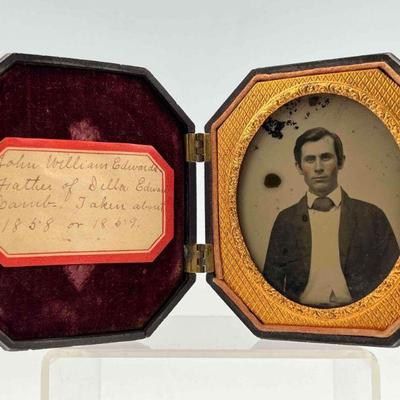 John William Edwards
Father of Della Edwards
Camb. Taken about
1858 or 1859.